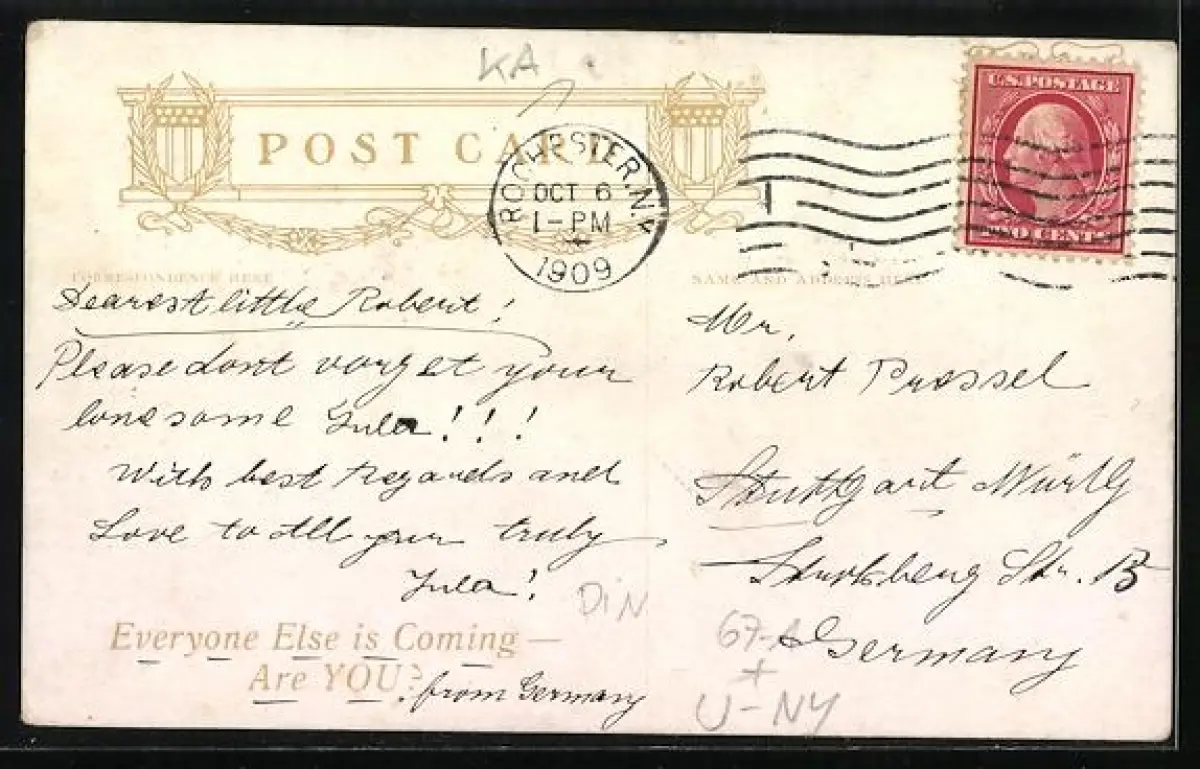 KA
POST CARD
ROCHESTER. N.Y.
OCT 6
1-PM
1909
U.S. POSTAGE
TWO CENTS
CORRESPONDENCE HERE
NAME AND ADDRESS HERE
Dearest little Robert!
Please dont vorget your
lonesome Jula!!!
With best Regards and
Love to all your truly
Jula!
DiN
Everyone Else is Coming —
Are YOU?
from Germany
Mr.
Robert Pressel
Stuttgart Würtbg
Str. 13
Germany
67-A
+
U-NY